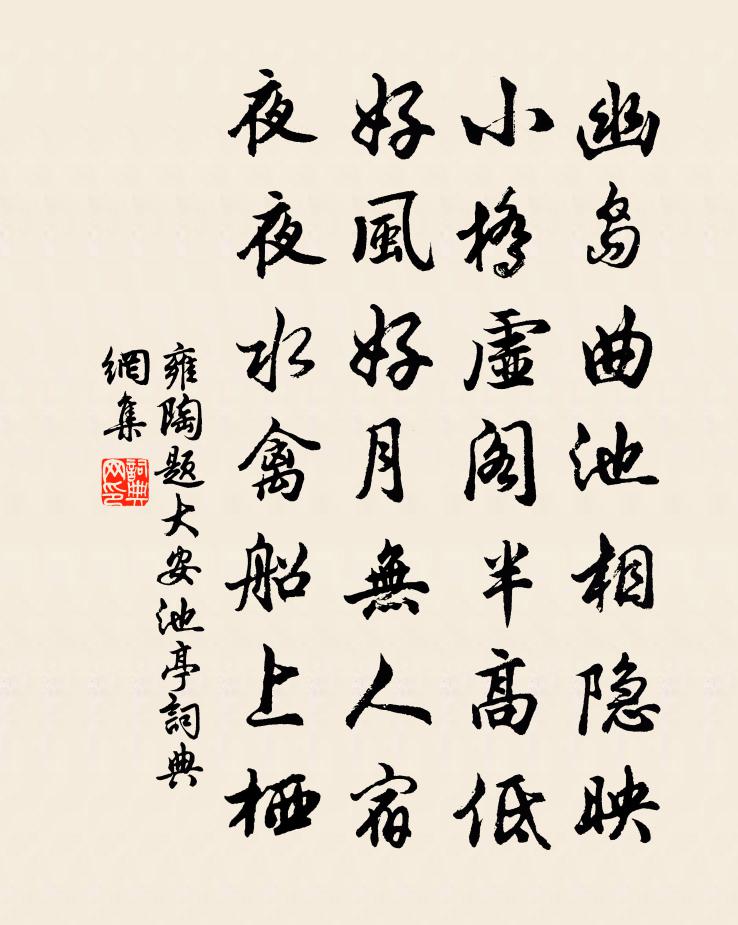 幽島曲池相隐映
小橋虛閣半高低
好風好月無人宿
夜夜水禽船上栖
雍陶題大安池亭詞典
網集
詞典网印